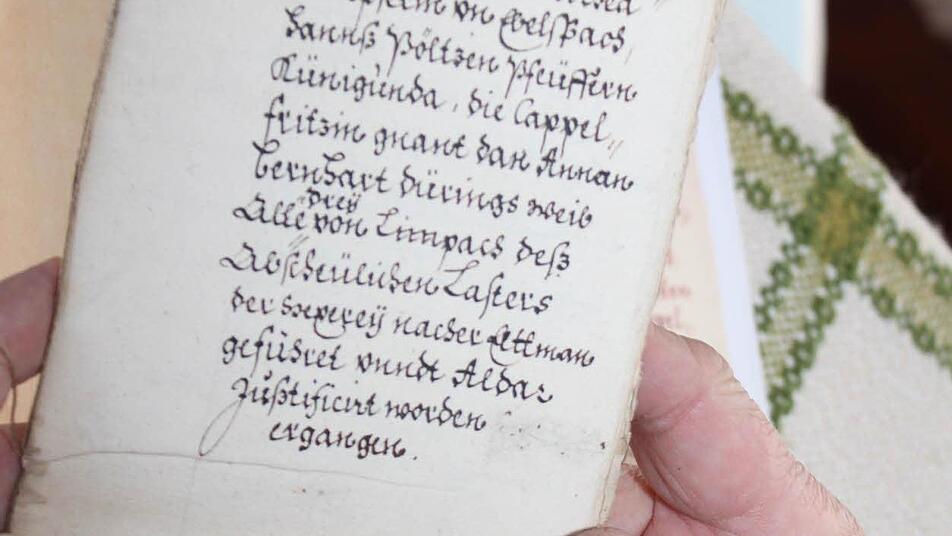 von Ebelspach,
Hannß Pöltzen Pfeüffern
Künigunda, die Cappel„
fritzin gnant dan Annan
bernhart dürings weib
Alle drey von Limpach deß
Abscheülichen Lasters
der Hexerey nacher Eltman
geführet unndt Aldar
Justificirt worden
ergangen.